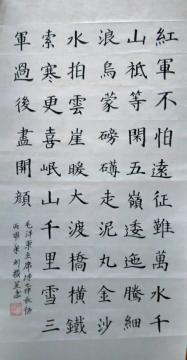 紅軍不怕遠征難萬水千
山祇等閑五嶺逶迤騰細
浪烏蒙磅礴走泥丸金沙
水拍雲崖暖大渡橋橫鐵
索寒更喜岷山千里雪三
軍過後盡開顏
毛泽東主席
丙申